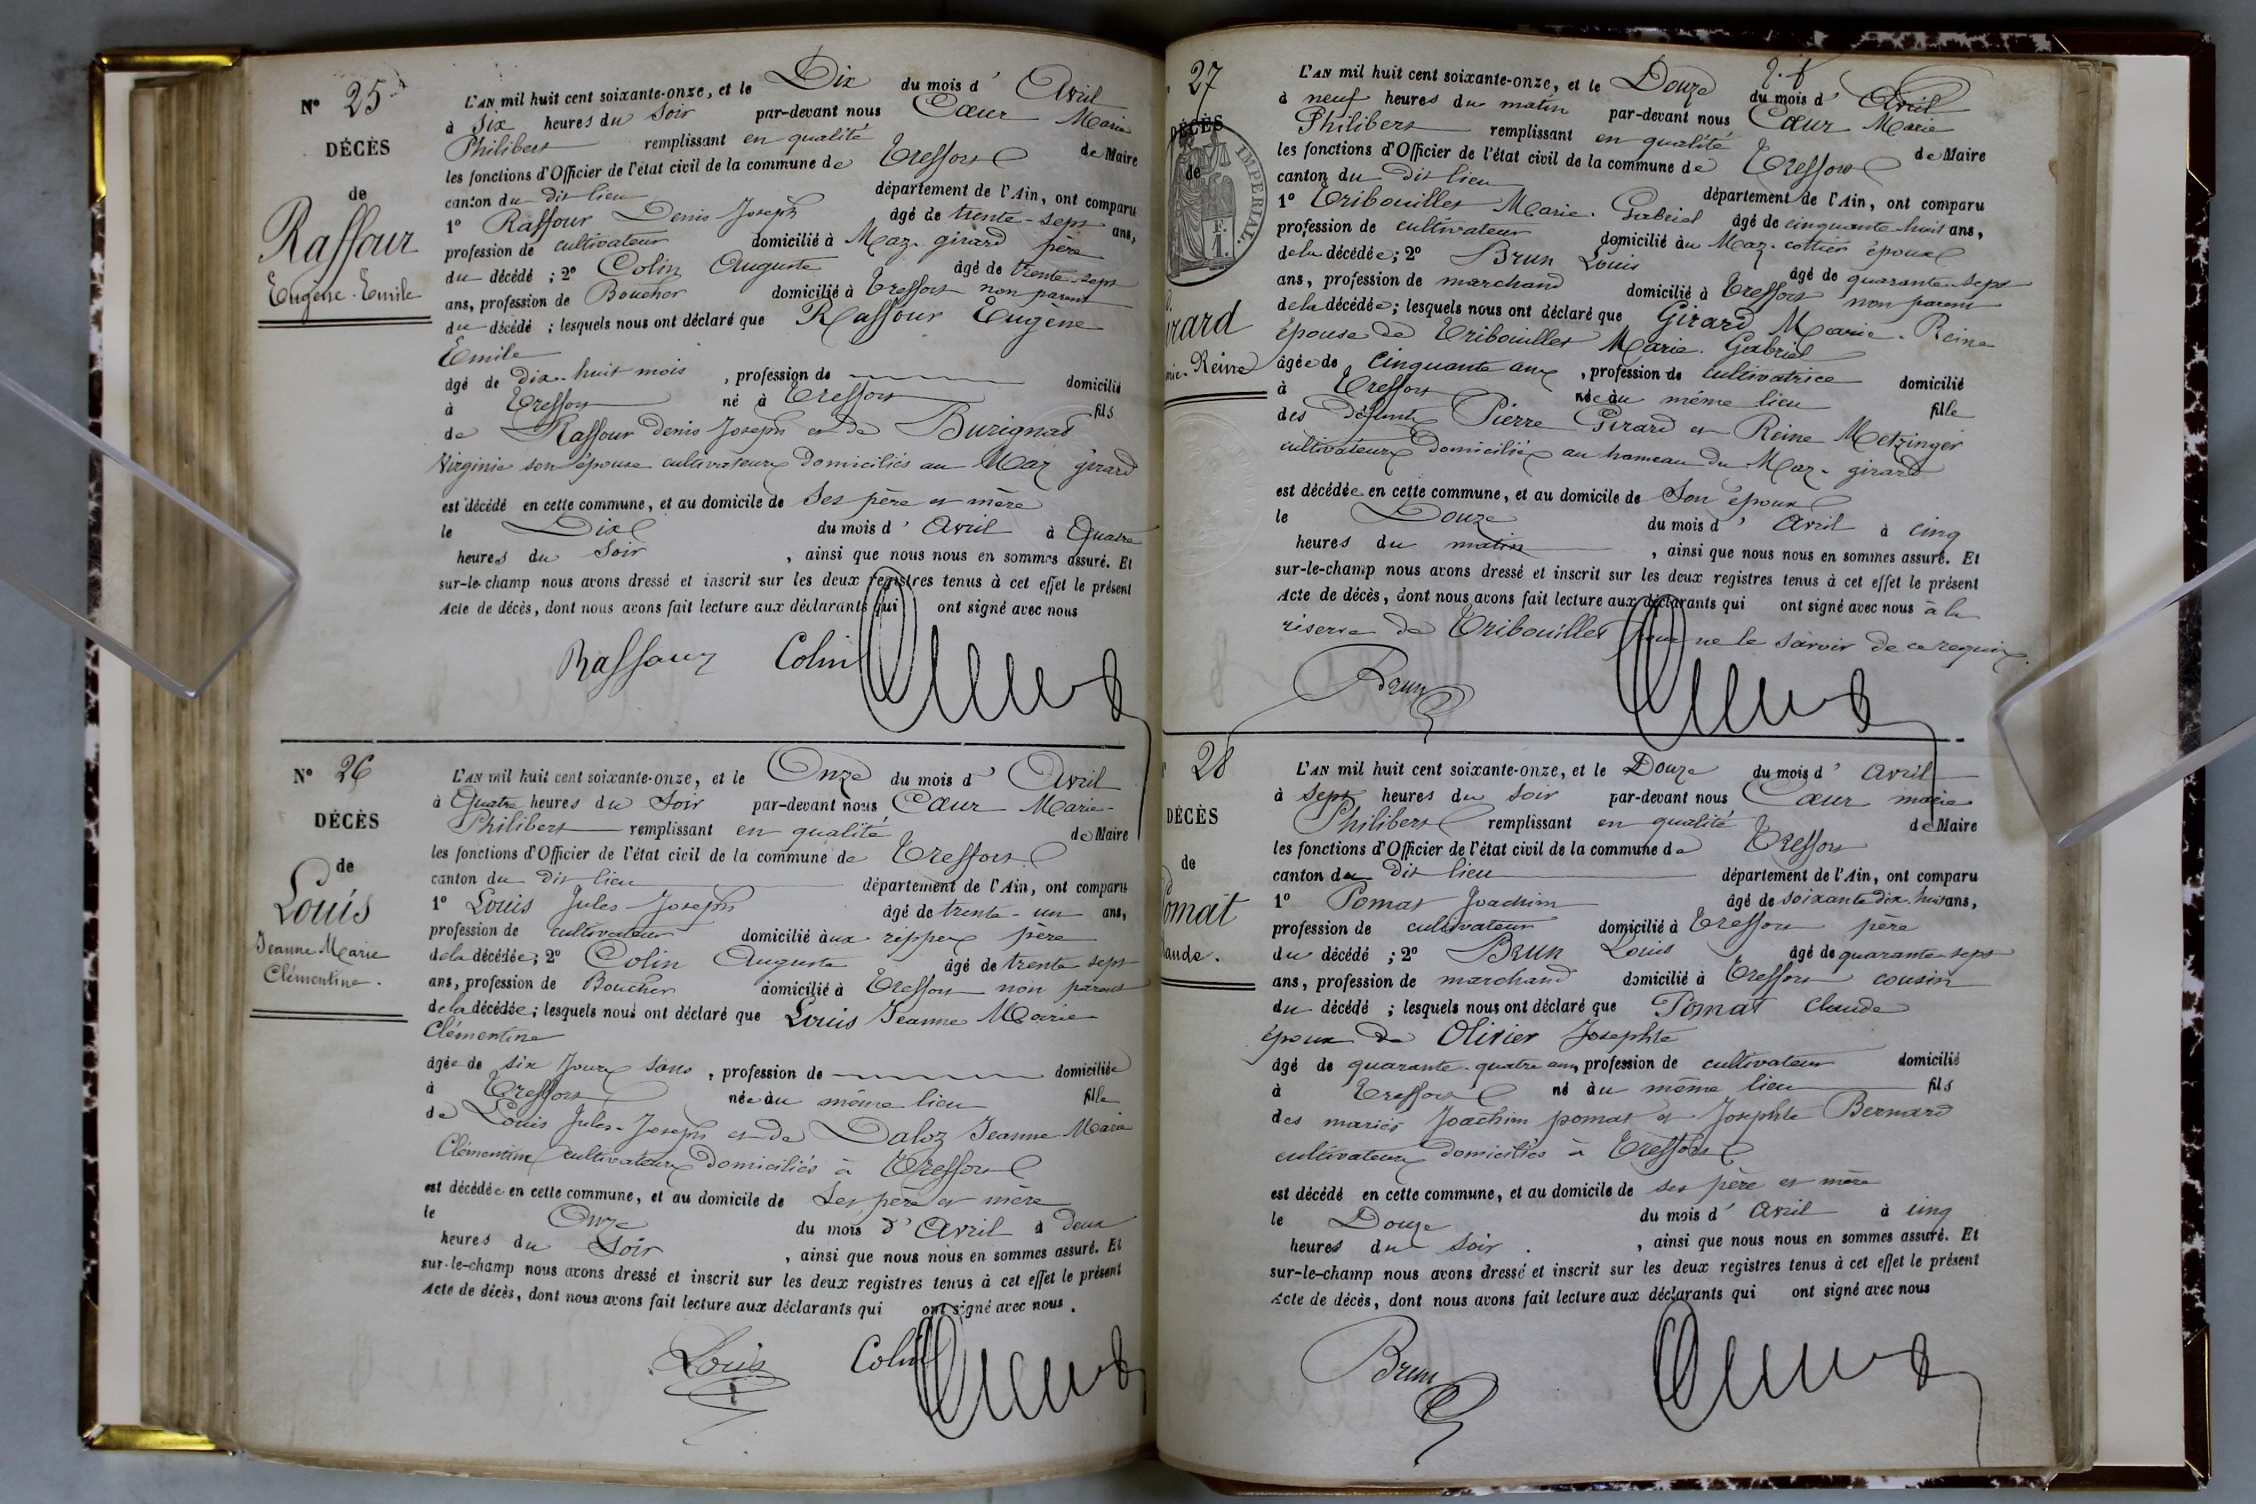 N° 25
DÉCÈS
de
Raffour
Eugène-Emile
L'AN mil huit cent soixante-onze, et le Dix du mois d' Avril
à Six heures du Soir par-devant nous Cœur Marie
Philibert remplissant en qualité de Maire
les fonctions d'Officier de l'état civil de la commune de Treffort
canton du dit lieu département de l'Ain, ont comparu
1° Raffour Denis Joseph âgé de trente-sept ans,
profession de cultivateur domicilié à Maz-girard père
du décédé ; 2° Colin Auguste âgé de trente-sept
ans, profession de Boucher domicilié à Treffort non parent
du décédé ; lesquels nous ont déclaré que Raffour Eugène
Emile
âgé de dix-huit mois , profession de domicilié
à Treffort né à Treffort fils
de Raffour denis Joseph et de Burignat
Virginie son épouse cultivateurs domiciliés au Maz girard
est décédé en cette commune, et au domicile de Ses père et mère
le Dix du mois d' Avril à Quatre
heures du Soir , ainsi que nous nous en sommes assuré. Et
sur-le-champ nous avons dressé et inscrit sur les deux registres tenus à cet effet le présent
Acte de décès, dont nous avons fait lecture aux déclarants qui ont signé avec nous
Raffour Colin
N° 26
DÉCÈS
de
Louis
Jeanne Marie
Clémentine.
L'AN mil huit cent soixante-onze, et le Onze du mois d' Avril
à Quatre heures du Soir par-devant nous Cœur Marie-
Philibert remplissant en qualité de Maire
les fonctions d'Officier de l'état civil de la commune de Treffort
canton du dit lieu département de l'Ain, ont comparu
1° Louis Jules-Joseph âgé de trente-un ans,
profession de cultivateur domicilié aux rippes père
de la décédée ; 2° Colin Auguste âgé de trente sept
ans, profession de Boucher domicilié à Treffort non parent
de la décédée ; lesquels nous ont déclaré que Louis Jeanne Marie
Clémentine
âgée de six Jours sans , profession de domiciliée
à Treffort née au même lieu fille
de Louis Jules-Joseph et de Daloz Jeanne-Marie
Clémentine cultivateurs domiciliés à Treffort
est décédée en cette commune, et au domicile de Ses père et mère
le Onze du mois d' Avril à deux
heures du Soir , ainsi que nous nous en sommes assuré. Et
sur-le-champ nous avons dressé et inscrit sur les deux registres tenus à cet effet le présent
Acte de décès, dont nous avons fait lecture aux déclarants qui ont signé avec nous.
Louis Colin
27
DÉCÈS
de
IMPERIAL.
1 F.
rard
rie-Reine
L'AN mil huit cent soixante-onze, et le Douze du mois d' Avril
à neuf heures du matin par-devant nous Cœur Marie
Philibert remplissant en qualité de Maire
les fonctions d'Officier de l'état civil de la commune de Treffort
canton du dit lieu département de l'Ain, ont comparu
1° Tribouillet Marie-Gabriel âgé de cinquante-huit ans,
profession de cultivateur domicilié au Maz-cottier époux
de la décédée ; 2° Brun Louis âgé de quarante-sept
ans, profession de marchand domicilié à Treffort non parent
de la décédée ; lesquels nous ont déclaré que Girard Marie-Reine
épouse de Tribouillet Marie-Gabriel
âgée de cinquante ans , profession de cultivatrice domicilié
à Treffort née au même lieu fille
des défunts Pierre Girard et Reine Metzinger
cultivateurs domiciliés au hameau du Maz-girard
est décédée en cette commune, et au domicile de Son époux
le Douze du mois d' Avril à cinq
heures du matin , ainsi que nous nous en sommes assuré. Et
sur-le-champ nous avons dressé et inscrit sur les deux registres tenus à cet effet le présent
Acte de décès, dont nous avons fait lecture aux déclarants qui ont signé avec nous à la
réserve de Tribouillet pour ne le savoir de ce requis.
Brun
28
DÉCÈS
de
Pomat
laude.
L'AN mil huit cent soixante-onze, et le Douze du mois d' Avril
à sept heures du soir par-devant nous Cœur marie
Philibert remplissant en qualité de Maire
les fonctions d'Officier de l'état civil de la commune de Treffort
canton du dit lieu département de l'Ain, ont comparu
1° Pomat Joachim âgé de soixante dix-huit ans,
profession de cultivateur domicilié à Treffort père
du décédé ; 2° Brun Louis âgé de quarante sept
ans, profession de marchand domicilié à Treffort cousin
du décédé ; lesquels nous ont déclaré que Pomat Claude
époux de Olivier Josephte
âgé de quarante-quatre ans, profession de cultivateur domicilié
à Treffort né au même lieu fils
des mariés Joachim pomat et Josephte Bernard
cultivateurs domiciliés à Treffort
est décédé en cette commune, et au domicile de ses père et mère
le Douze du mois d' Avril à cinq
heures du soir. , ainsi que nous nous en sommes assuré. Et
sur-le-champ nous avons dressé et inscrit sur les deux registres tenus à cet effet le présent
Acte de décès, dont nous avons fait lecture aux déclarants qui ont signé avec nous
Brun